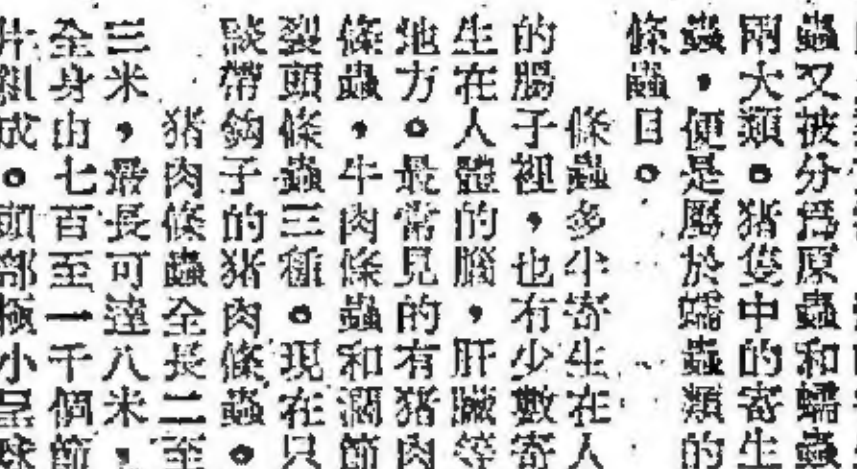 蟲又被分爲原蟲和蠕蟲
兩大類。猪隻中的寄生
蟲，便是屬於蠕蟲類的
條蟲目。
條蟲多半寄生在人
的腸子裡，也有少數寄
生在人體的腦，肝臟等
地方。最常見的有猪肉
條蟲，牛肉條蟲和濶節
裂頭條蟲三種。現在只
談帶鈎子的猪肉條蟲。
猪肉條蟲全長二至
三米，最長可達八米，
全身由七百至一千個節
片組成。頭部極小呈球